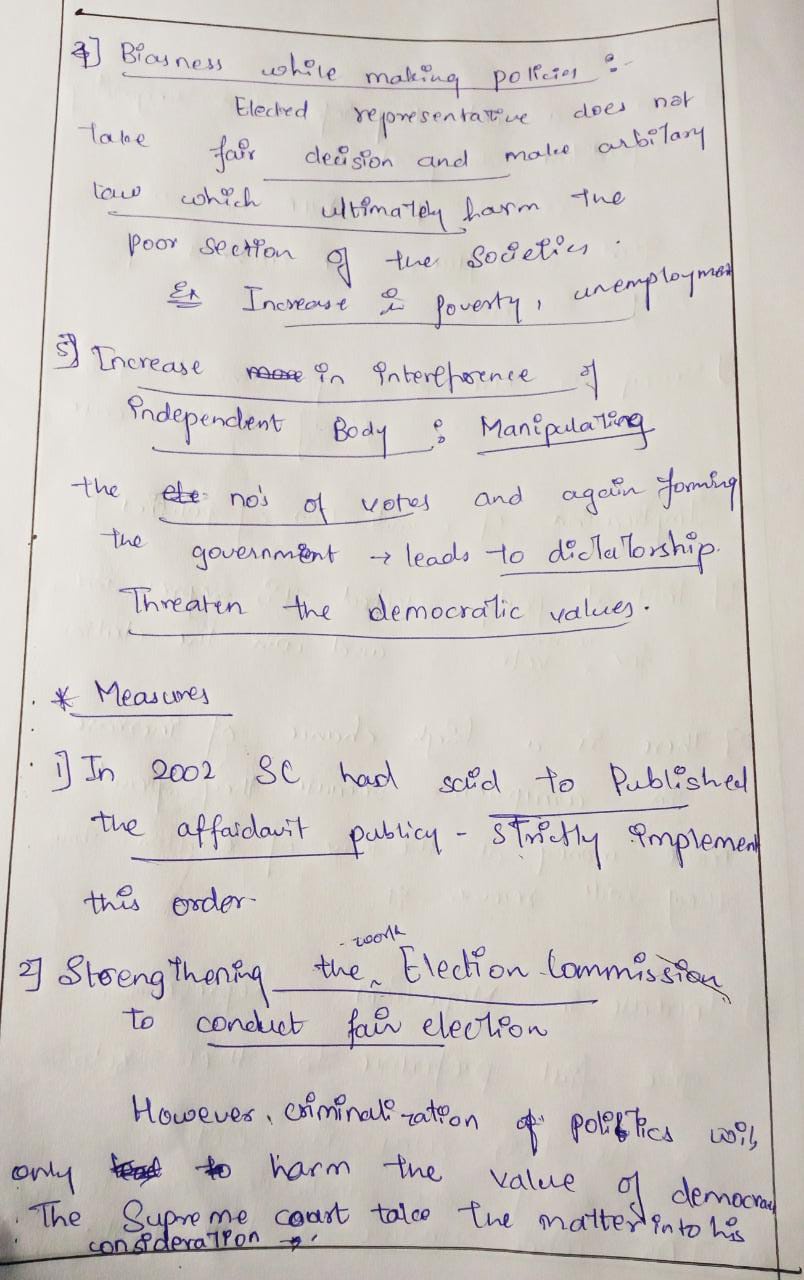 4] Biasness while making policies :-
Elected representative does not
take fair decision and make arbitary
law which ultimately harm the
poor section of the societies.
Ex Increase in Poverty, unemployment
5] Increase in interefherence of
independent Body : Manipulating
the no's of votes and again forming
the government → leads to dictatorship.
Threaten the democratic values.
* Measures
1] In 2002 SC had said to Published
the affaidavit publicy - strictly implement
this order.
- work
2] Strengthening the ^ Election Commission
to conduct fair election
However, criminalization of politics will
only harm the value of democracy
The Supreme court take the matter into his
consideration